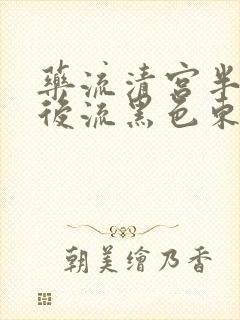 藥流清宮半
後流黑色東
朝美繪乃香